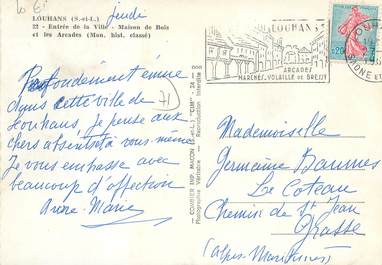 jeudi
LOUHANS (S.-et-L.)
22 - Entrée de la Ville - Maison de Bois
et les Arcades (Mon. hist. classé)
Profondément émue
dans cette ville de
Louhans, je pense aux
chers absents et à vous-même
Je vous embrasse avec
beaucoup d'affection
Anne-Marie
71
COMBIER IMP. MACON (S.-et-L.) "CIM"
Photographie Véritable - Reproduction Interdite
LOUHANS
ARCADES
MARCHÉS, VOLAILLE DE BRESSE
0,20
Mademoiselle
Germaine Baumes
Le Coteau
Chemin de St Jean
Grasse
(Alpes-Maritimes)